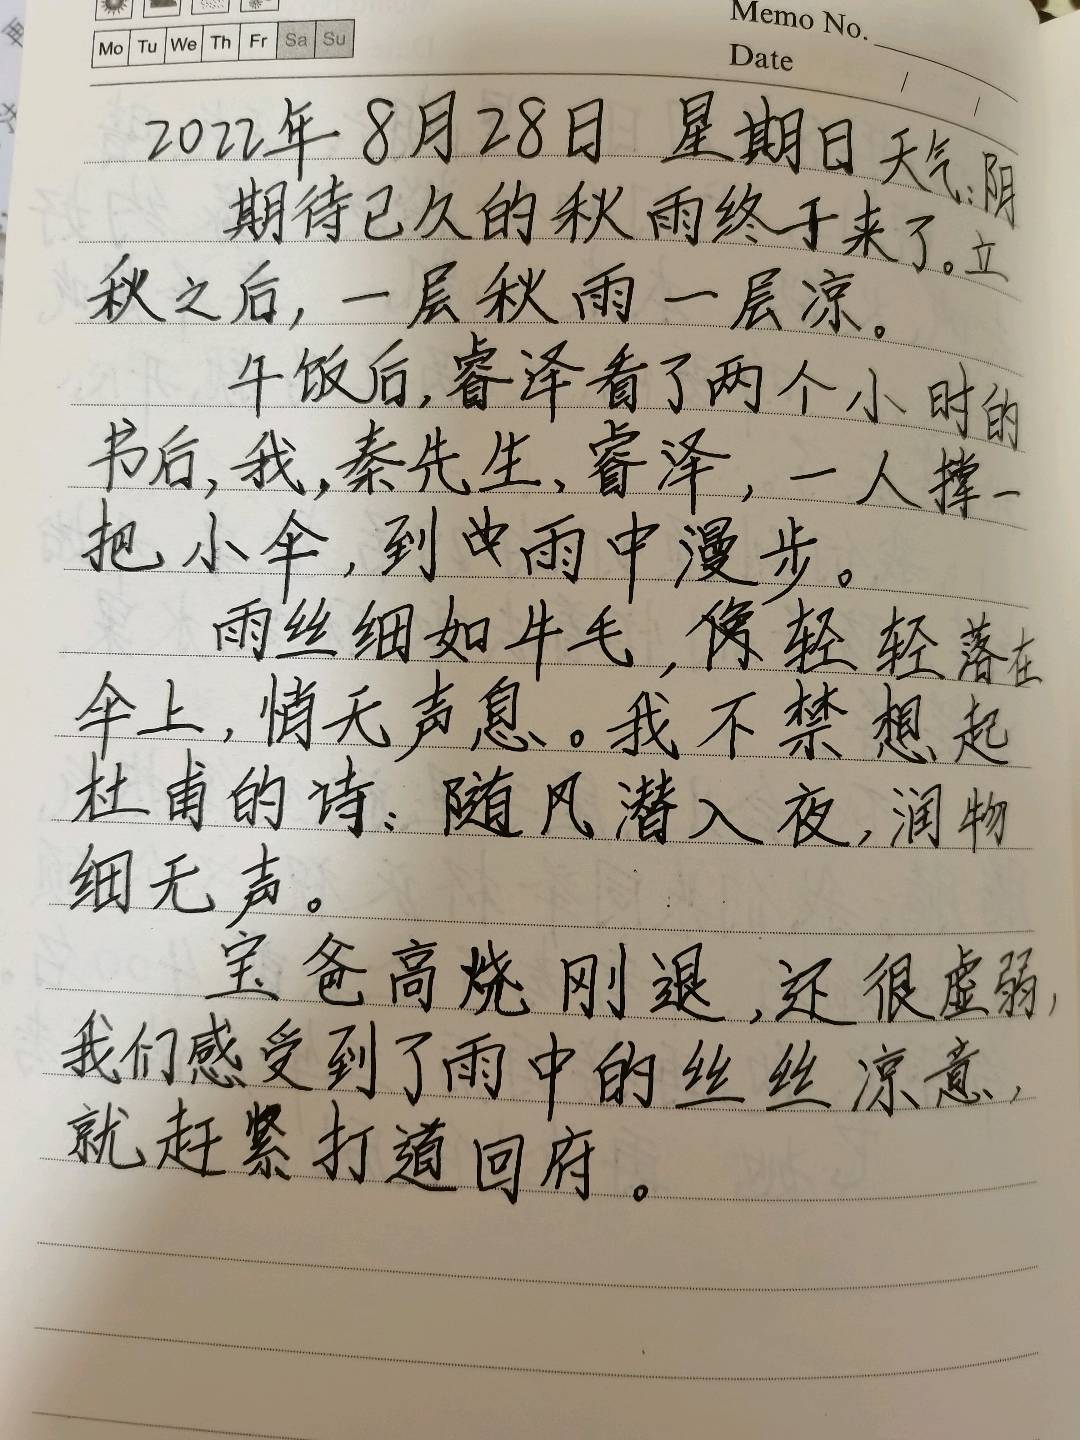 Mo Tu We Th Fr Sa Su
Memo No.
Date / /
2022年8月28日 星期日 天气:阴
期待已久的秋雨终于来了。立
秋之后,一层秋雨一层凉。
午饭后,睿泽看了两个小时的
书后,我,秦先生、睿泽,一人撑一
把小伞,到雨中漫步。
雨丝细如牛毛,像轻轻落在
伞上,悄无声息。我不禁想起
杜甫的诗:随风潜入夜,润物
细无声。
宝爸高烧刚退,还很虚弱,
我们感受到了雨中的丝丝凉意,
就赶紧打道回府。